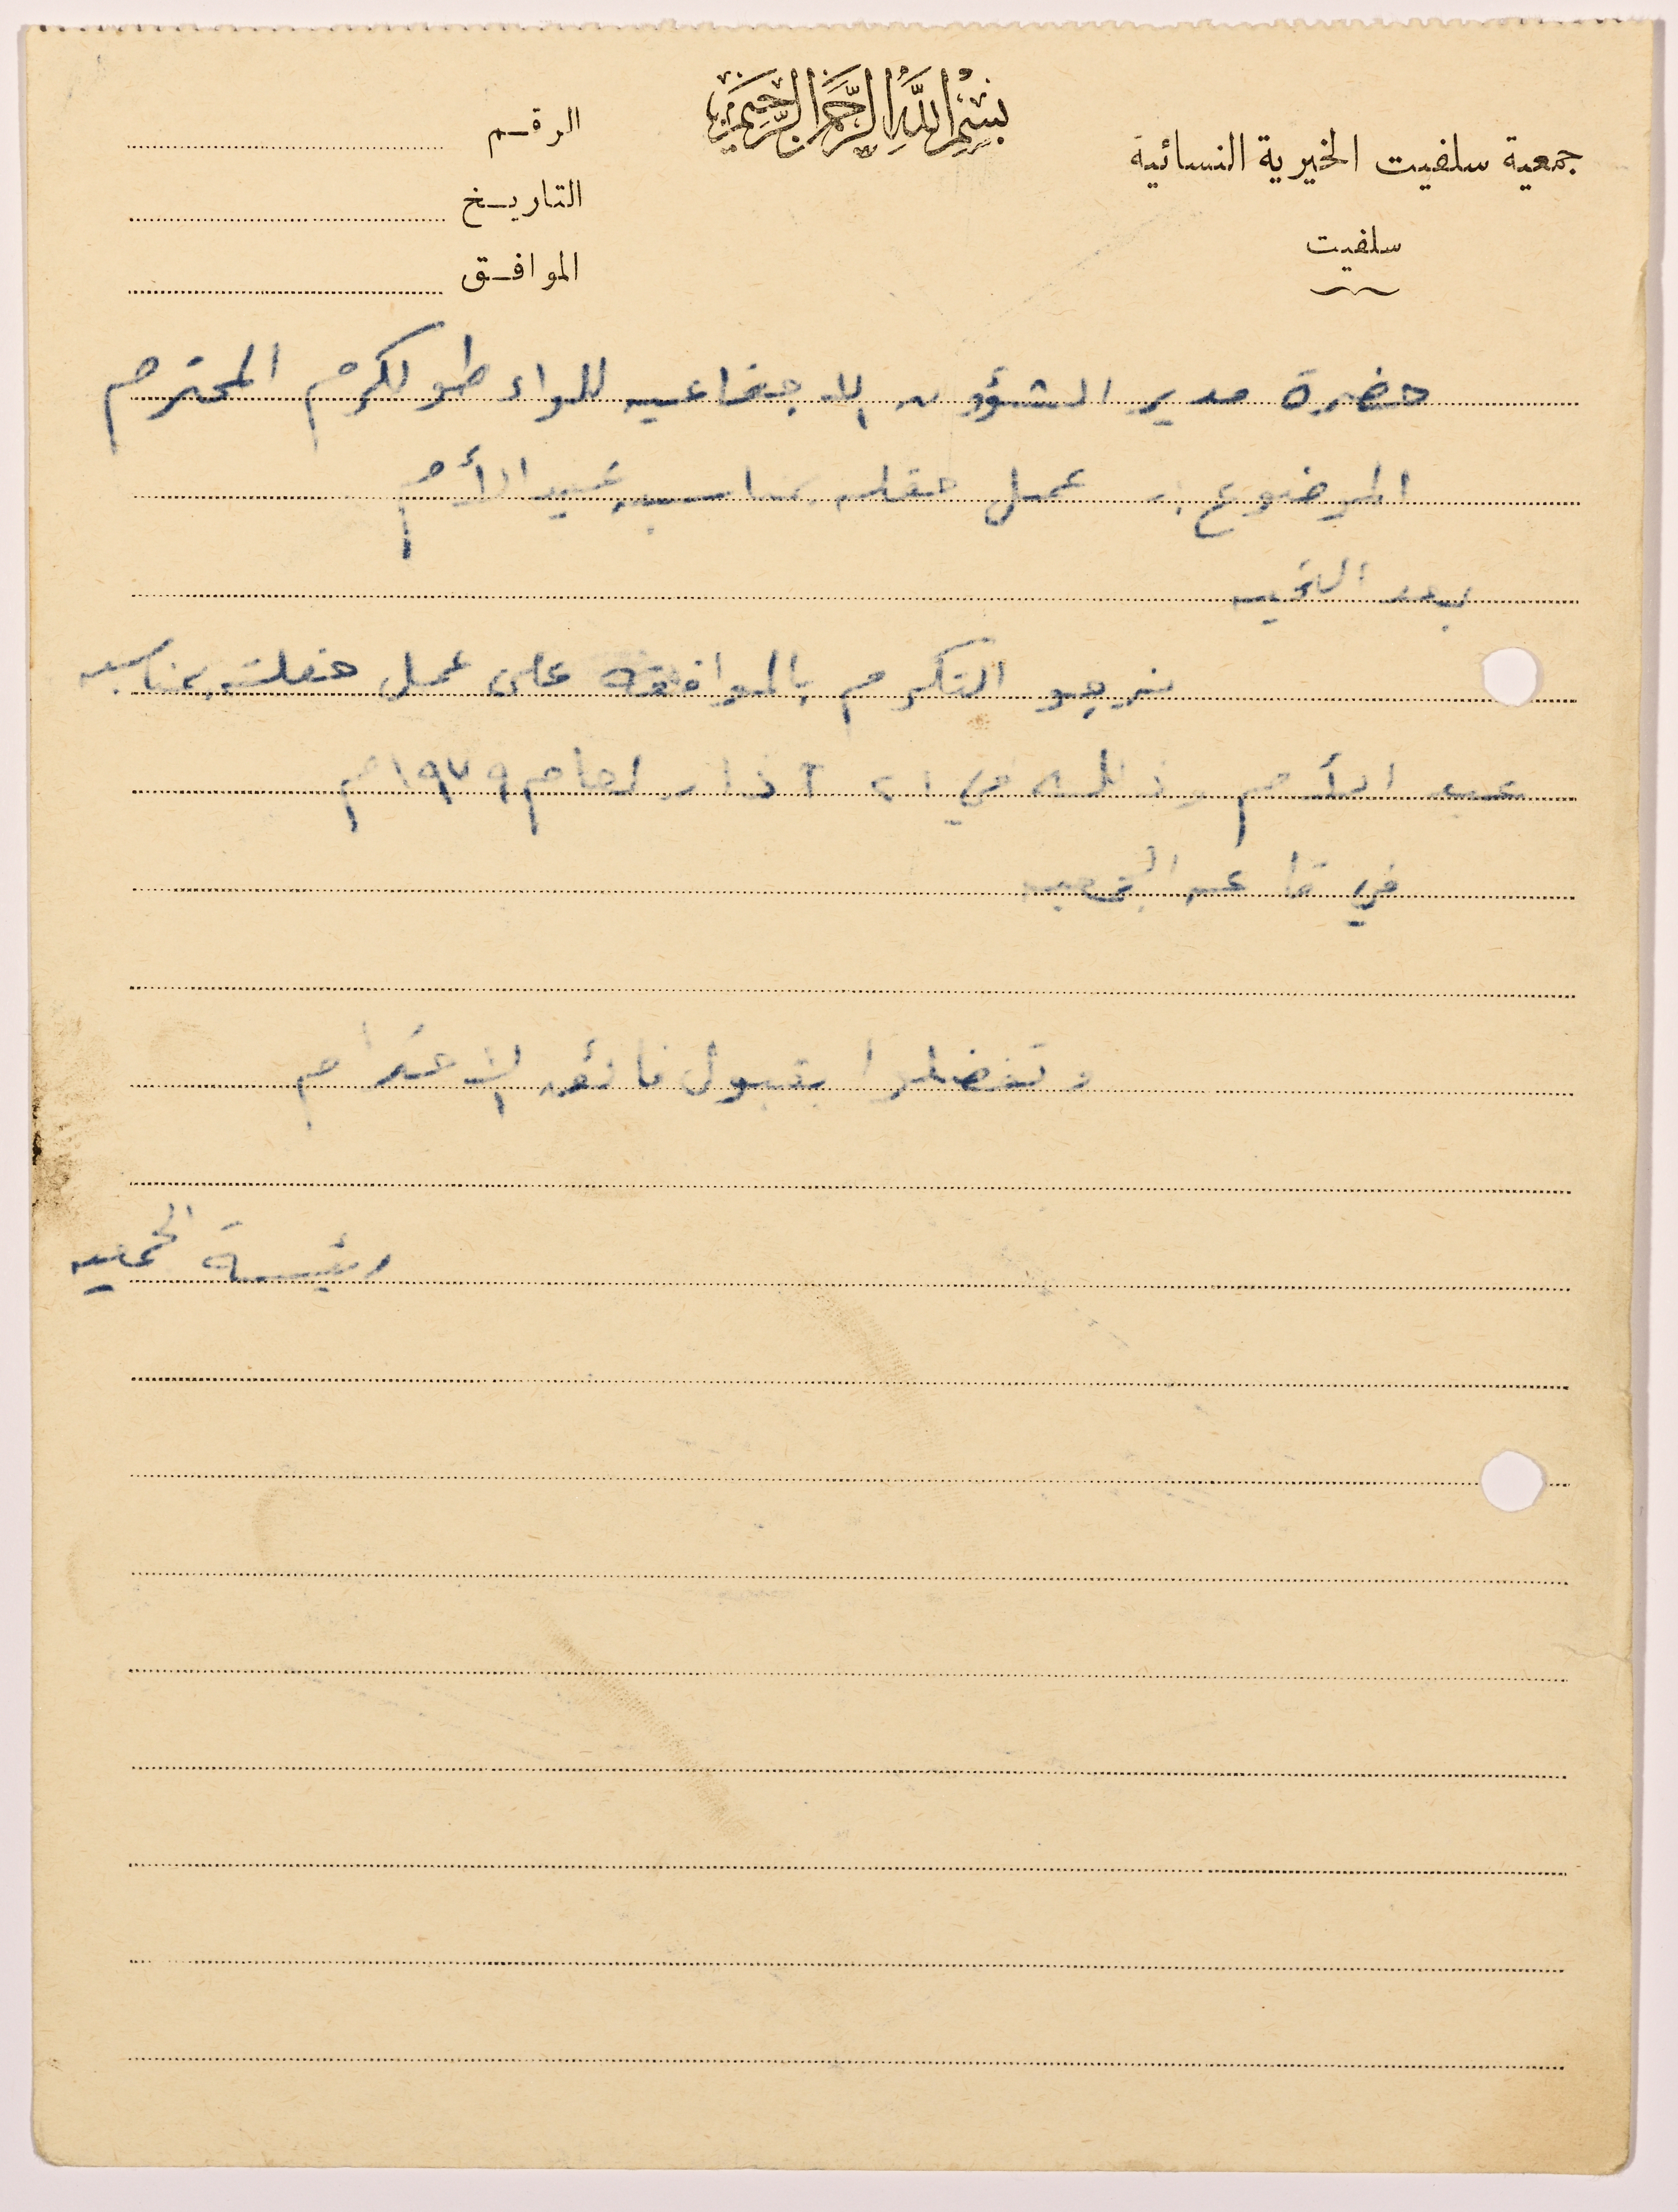 بسم الله الرحمن الرحيم
جمعية سلفيت الخيرية النسائية
سلفيت
الرقم
التاريخ
الموافق
حضرة مدير الشؤون الاجتماعيه للواء طولكرم المحترم
الموضوع :- عمل حفله بمناسبه عيد الأم
بعد التحيه
نرجو التكرم بالموافقه على عمل حفلة بمناسبه
عيد الأم وذلك في ٢١ آذار لعام ١٩٧٩م
في قاعه الجمعيه
وتفضلوا بقبول فائق الاحترام
رئيسة الجمعيه